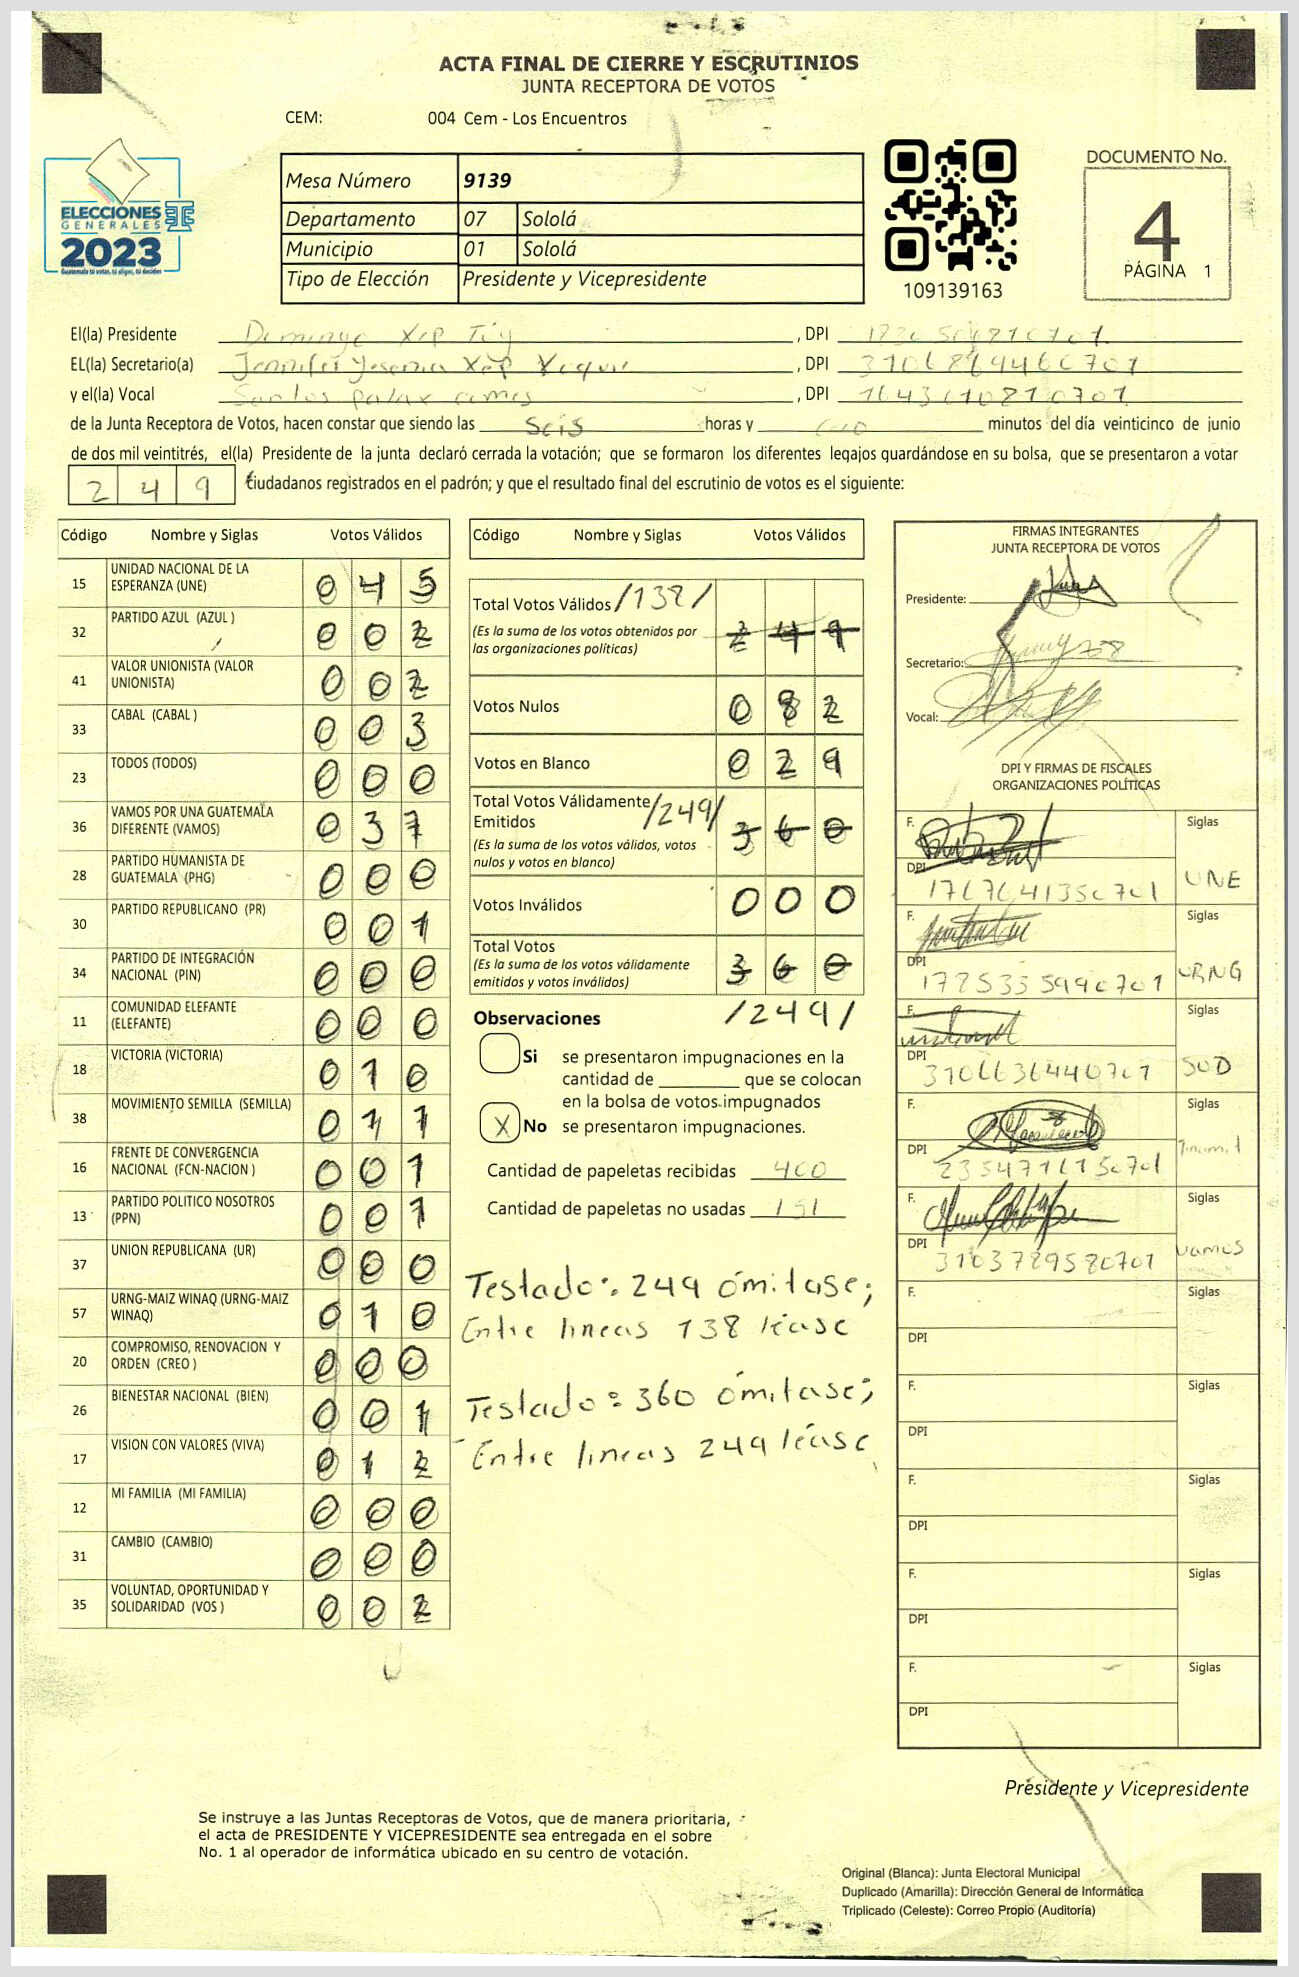 ACTA FINAL DE CIERRE Y ESCRUTINIOS
JUNTA RECEPTORA DE VOTOS
CEM: 004 Cem - Los Encuentros
ELECCIONES
GENERALES
2023
Guatemala tú votas, tú eliges, tú decides
Mesa Número 9139
Departamento 07 Sololá
Municipio 01 Sololá
Tipo de Elección Presidente y Vicepresidente
109139163
DOCUMENTO No.
4
PÁGINA 1
El(la) Presidente Domingo Xep , DPI
EL(la) Secretario(a) Jennifer Yesenia Xep , DPI 3106869460701
y el(la) Vocal Santos , DPI
de la Junta Receptora de Votos, hacen constar que siendo las seis horas y minutos del día veinticinco de junio
de dos mil veintitrés, el(la) Presidente de la junta declaró cerrada la votación; que se formaron los diferentes legajos guardándose en su bolsa, que se presentaron a votar
249 ciudadanos registrados en el padrón; y que el resultado final del escrutinio de votos es el siguiente:
Código Nombre y Siglas Votos Válidos
15 UNIDAD NACIONAL DE LA ESPERANZA (UNE) 045
32 PARTIDO AZUL (AZUL ) 002
41 VALOR UNIONISTA (VALOR UNIONISTA) 002
33 CABAL (CABAL ) 003
23 TODOS (TODOS) 000
36 VAMOS POR UNA GUATEMALA DIFERENTE (VAMOS) 037
28 PARTIDO HUMANISTA DE GUATEMALA (PHG) 000
30 PARTIDO REPUBLICANO (PR) 001
34 PARTIDO DE INTEGRACIÓN NACIONAL (PIN) 000
11 COMUNIDAD ELEFANTE (ELEFANTE) 000
18 VICTORIA (VICTORIA) 010
38 MOVIMIENTO SEMILLA (SEMILLA) 011
16 FRENTE DE CONVERGENCIA NACIONAL (FCN-NACION ) 001
13 PARTIDO POLITICO NOSOTROS (PPN) 001
37 UNION REPUBLICANA (UR) 000
57 URNG-MAIZ WINAQ (URNG-MAIZ WINAQ) 010
20 COMPROMISO, RENOVACION Y ORDEN (CREO ) 000
26 BIENESTAR NACIONAL (BIEN) 001
17 VISION CON VALORES (VIVA) 012
12 MI FAMILIA (MI FAMILIA) 000
31 CAMBIO (CAMBIO) 000
35 VOLUNTAD, OPORTUNIDAD Y SOLIDARIDAD (VOS ) 002
Código Nombre y Siglas Votos Válidos
Total Votos Válidos /138/ 249
(Es la suma de los votos obtenidos por
las organizaciones políticas)
Votos Nulos 082
Votos en Blanco 029
Total Votos Válidamente
Emitidos /249/ 360
(Es la suma de los votos válidos, votos
nulos y votos en blanco)
Votos Inválidos 000
Total Votos 360
(Es la suma de los votos válidamente
emitidos y votos inválidos)
/249/
Observaciones
Si se presentaron impugnaciones en la
cantidad de ________ que se colocan
en la bolsa de votos impugnados
X No se presentaron impugnaciones.
Cantidad de papeletas recibidas 400
Cantidad de papeletas no usadas 151
Testado: 249 ómitase;
Entre lineas 138 léase
Testado: 360 ómitase;
Entre lineas 249 léase
FIRMAS INTEGRANTES
JUNTA RECEPTORA DE VOTOS
Presidente:
Secretario:
Vocal:
DPI Y FIRMAS DE FISCALES
ORGANIZACIONES POLÍTICAS
F. Siglas
DPI 1767641350701 UNE
F. Siglas
DPI 1775335990701 URNG
F. Siglas
DPI 3106636440701
F. Siglas
DPI 2354716150701
F. Siglas
DPI 3103789580701 vamos
F. Siglas
DPI
F. Siglas
DPI
F. Siglas
DPI
F. Siglas
DPI
F. Siglas
DPI
Presidente y Vicepresidente
Se instruye a las Juntas Receptoras de Votos, que de manera prioritaria,
el acta de PRESIDENTE Y VICEPRESIDENTE sea entregada en el sobre
No. 1 al operador de informática ubicado en su centro de votación.
Original (Blanca): Junta Electoral Municipal
Duplicado (Amarilla): Dirección General de Informática
Triplicado (Celeste): Correo Propio (Auditoría)